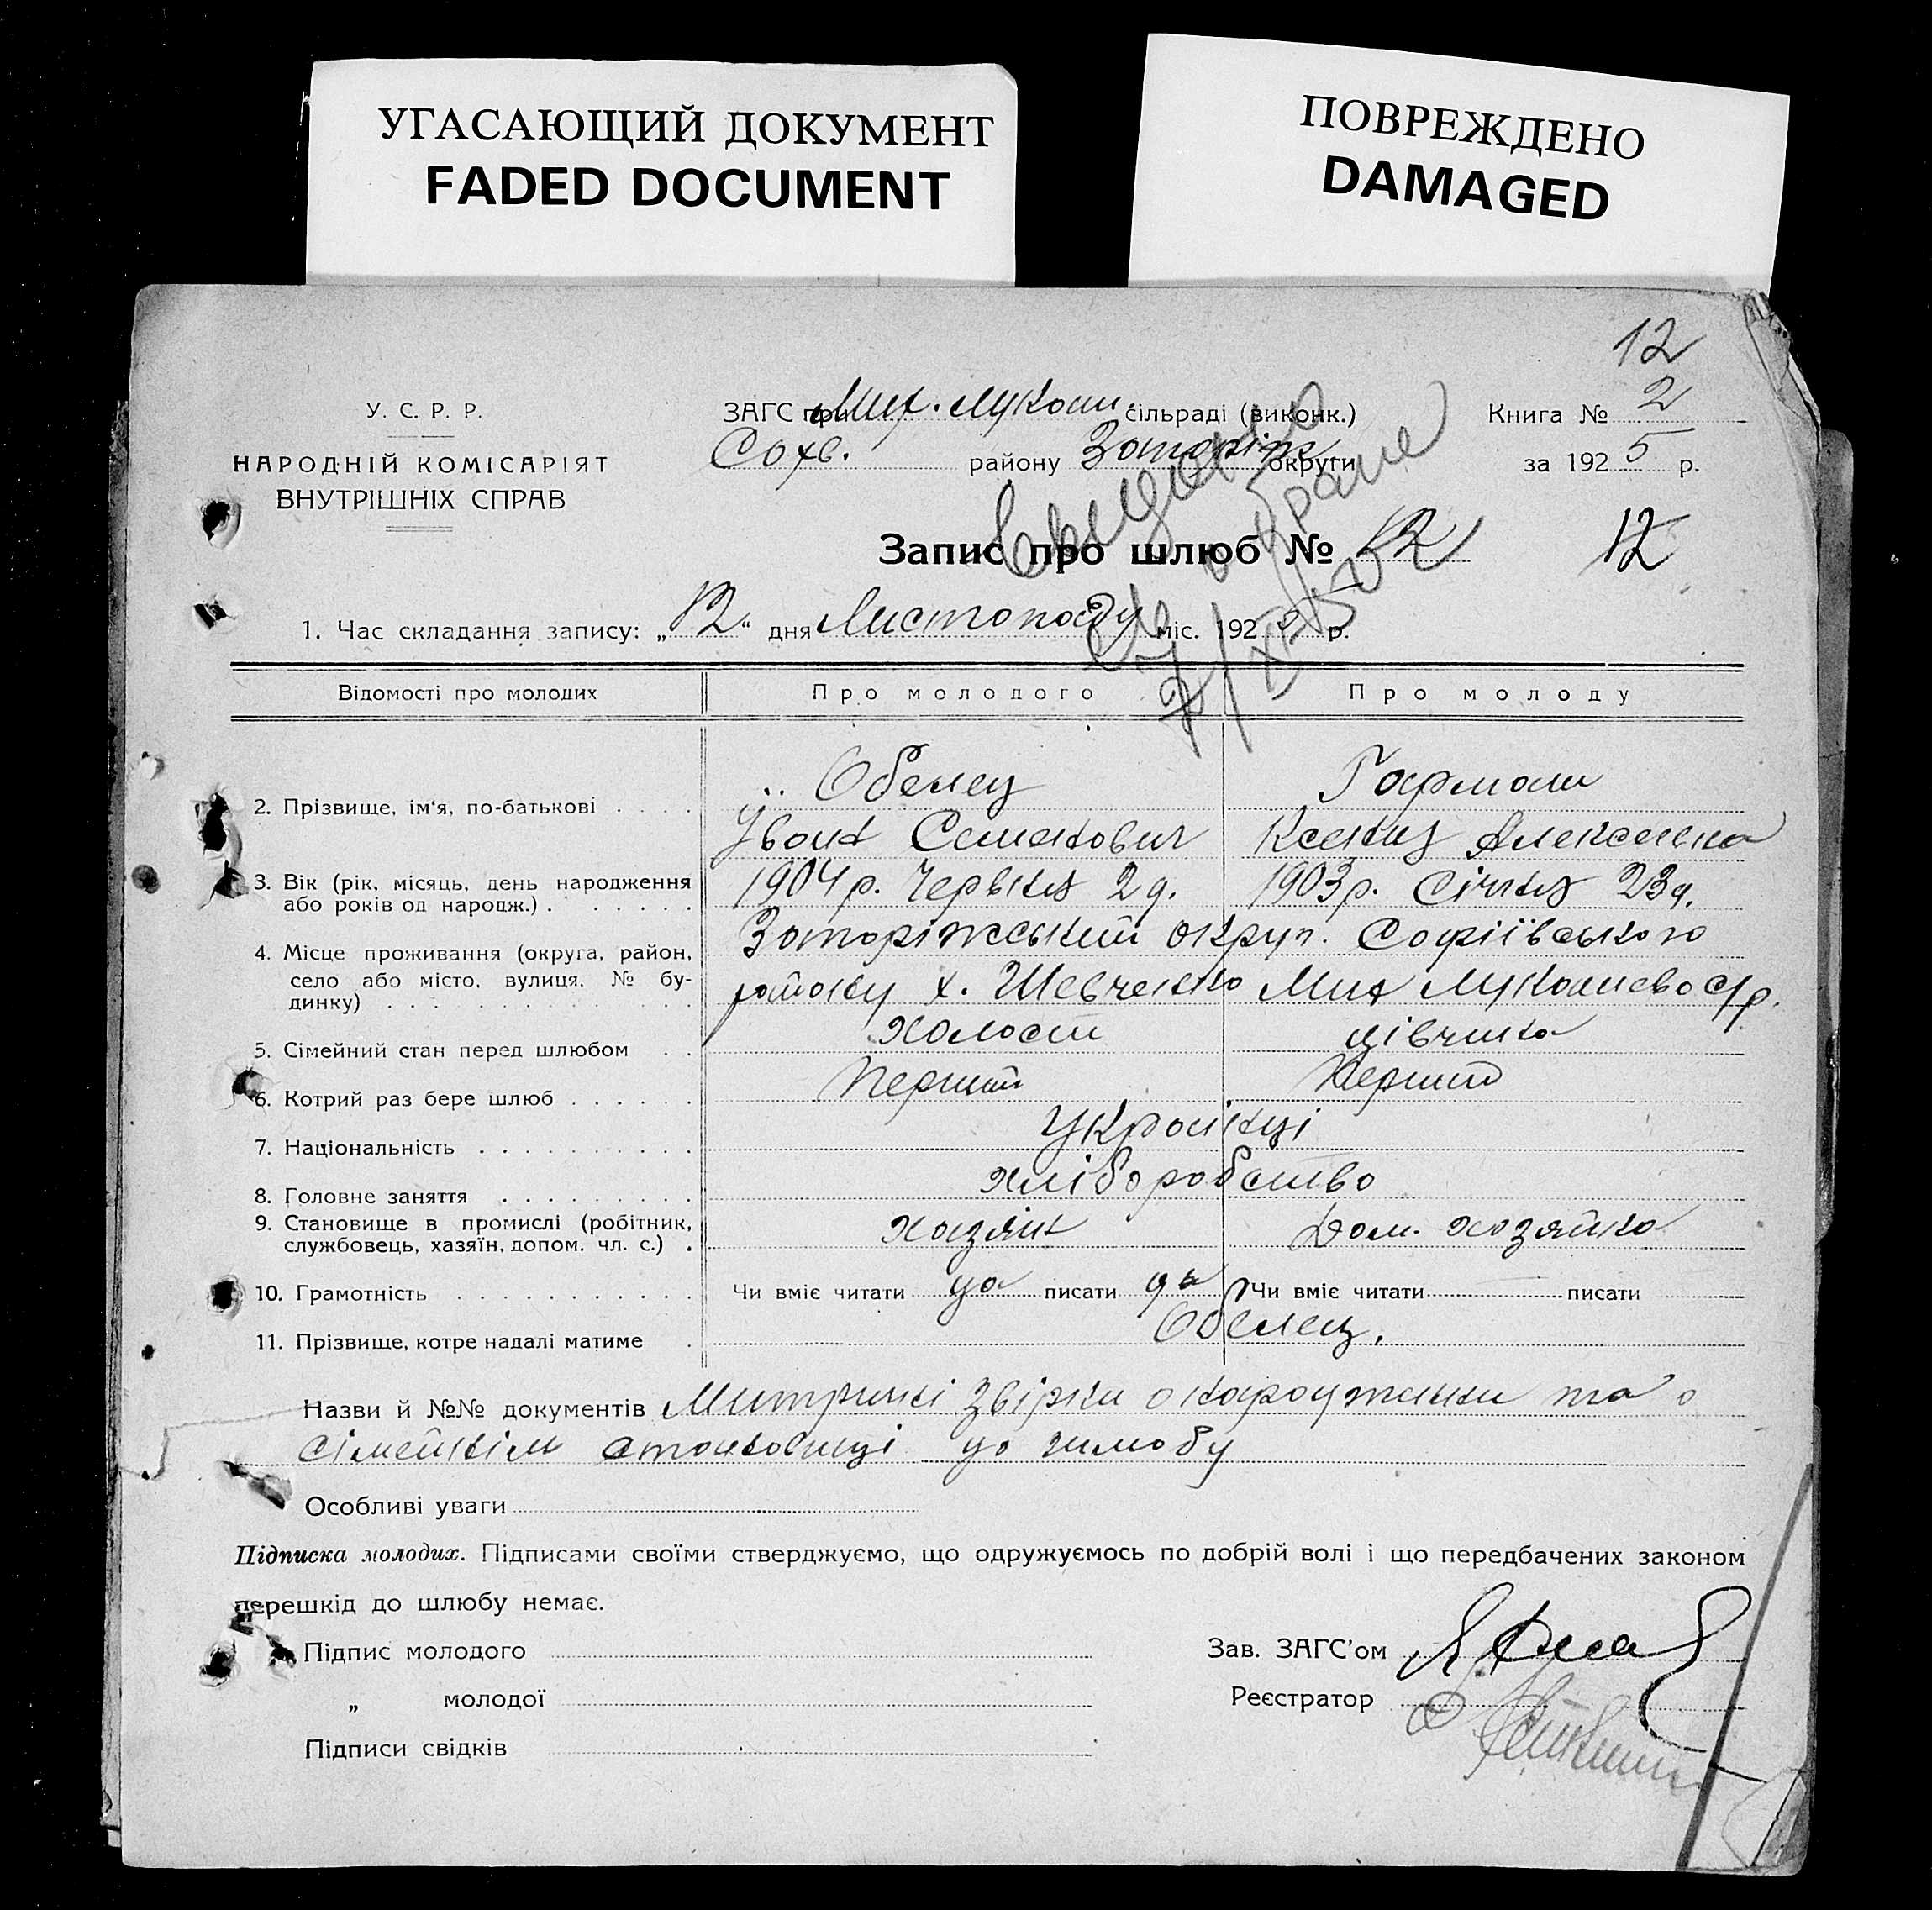 УГАСАЮЩИЙ ДОКУМЕНТ
FADED DOCUMENT
ПОВРЕЖДЕНО
DAMAGED
12
У. С. Р. Р.
НАРОДНІЙ КОМІСАРІЯТ
ВНУТРІШНІХ СПРАВ
ЗАГС при Мих. Лукаш. сільраді (виконк.)
Софв. району Запоріж округи
Книга № 2
за 1925 р.
Запис про шлюб № 12
12
1. Час складання запису: „12“ дня Листопаду міс. 1925 р.
Відомості про молодих
Про молодого
Про молоду
2. Прізвище, ім'я, по-батькові
Обелец
Іван Семенович
Гарман
Ксенія Алексеевна
3. Вік (рік, місяць, день народження
або років од народж.)
1904 р. Червня 2 д.
1903 р. Січня 23 д.
4. Місце проживання (округа, район,
село або місто, вулиця, № бу-
динку)
Запоріжський округ. Софіївського
району х. Шевченко Мих Лукашево с/р.
5. Сімейний стан перед шлюбом
холост
дівчина
6. Котрий раз бере шлюб
Перший
Перший
7. Національність
Українці
8. Головне заняття
хліборобство
9. Становище в промислі (робітник,
службовець, хазяїн, допом. чл. с.)
хазяїн
Дом. хозяйка
10. Грамотність
Чи вміє читати да писати да
Чи вміє читати писати
11. Прізвище, котре надалі матиме
Обелец.
Назви й №№ документів Митричні звірки о народженни та о
сімейнім становищі до шлюбу
Особливі уваги
Підписка молодих. Підписами своїми стверджуємо, що одружуємось по добрій волі і що передбачених законом
перешкід до шлюбу немає.
Підпис молодого
„ молодої
Підписи свідків
Зав. ЗАГС'ом
Реєстратор